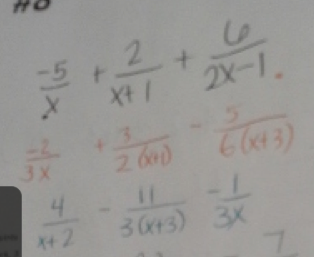 #8
-5/x + 2/x+1 + 6/2x-1.
-2/3x + 3/2(x+1) - 5/6(x+3)
4/x+2 - 11/3(x+3) -1/3x
7